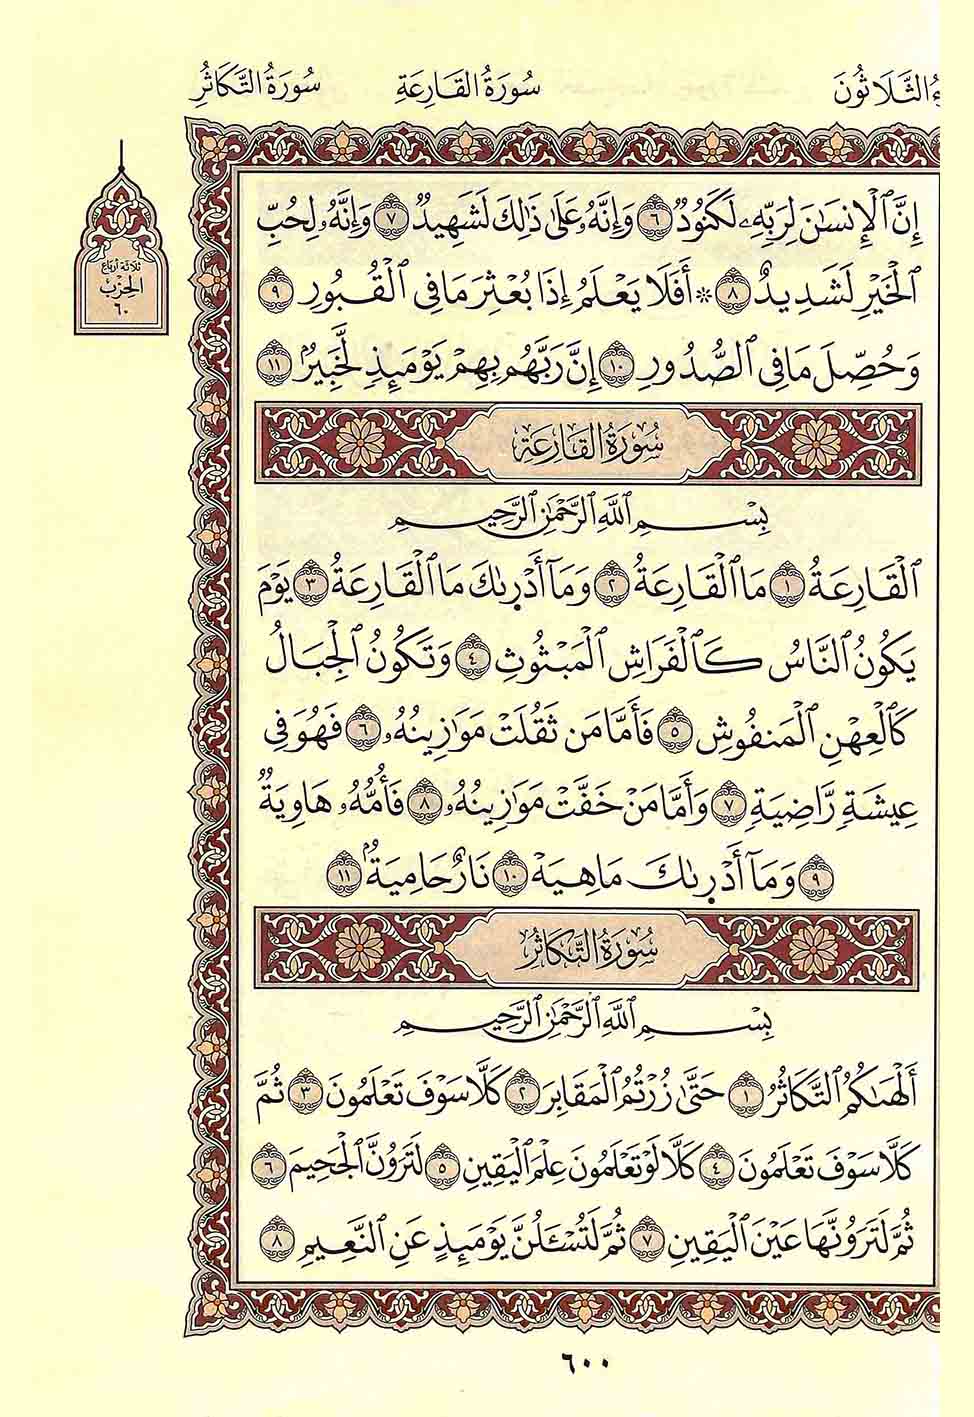 ءُ الثَّلَاثُونَ سُورَةُ القَارِعَةِ سُورَةُ التَّكَاثُرِ
إِنَّ ٱلْإِنسَٰنَ لِرَبِّهِۦ لَكَنُودٌ ٦ وَإِنَّهُۥ عَلَىٰ ذَٰلِكَ لَشَهِيدٌ ٧ وَإِنَّهُۥ لِحُبِّ
ٱلْخَيْرِ لَشَدِيدٌ ٨ ۞ أَفَلَا يَعْلَمُ إِذَا بُعْثِرَ مَا فِي ٱلْقُبُورِ ٩
ثلاثة أرباع
الحِزْبُ
٦٠
وَحُصِّلَ مَا فِي ٱلصُّدُورِ ١٠ إِنَّ رَبَّهُم بِهِمْ يَوْمَئِذٍ لَّخَبِيرٌۢ ١١
سُورَةُ القَارِعَة
بِسْمِ ٱللَّهِ ٱلرَّحْمَٰنِ ٱلرَّحِيمِ
ٱلْقَارِعَةُ ١ مَا ٱلْقَارِعَةُ ٢ وَمَآ أَدْرَىٰكَ مَا ٱلْقَارِعَةُ ٣ يَوْمَ
يَكُونُ ٱلنَّاسُ كَٱلْفَرَاشِ ٱلْمَبْثُوثِ ٤ وَتَكُونُ ٱلْجِبَالُ
كَٱلْعِهْنِ ٱلْمَنفُوشِ ٥ فَأَمَّا مَن ثَقُلَتْ مَوَٰزِينُهُۥ ٦ فَهُوَ فِي
عِيشَةٍ رَّاضِيَةٍ ٧ وَأَمَّا مَنْ خَفَّتْ مَوَٰزِينُهُۥ ٨ فَأُمُّهُۥ هَاوِيَةٌ
٩ وَمَآ أَدْرَىٰكَ مَا هِيَهْ ١٠ نَارٌ حَامِيَةٌۢ ١١
سُورَةُ التَّكَاثُر
بِسْمِ ٱللَّهِ ٱلرَّحْمَٰنِ ٱلرَّحِيمِ
أَلْهَىٰكُمُ ٱلتَّكَاثُرُ ١ حَتَّىٰ زُرْتُمُ ٱلْمَقَابِرَ ٢ كَلَّا سَوْفَ تَعْلَمُونَ ٣ ثُمَّ
كَلَّا سَوْفَ تَعْلَمُونَ ٤ كَلَّا لَوْ تَعْلَمُونَ عِلْمَ ٱلْيَقِينِ ٥ لَتَرَوُنَّ ٱلْجَحِيمَ ٦
ثُمَّ لَتَرَوُنَّهَا عَيْنَ ٱلْيَقِينِ ٧ ثُمَّ لَتُسْـَٔلُنَّ يَوْمَئِذٍ عَنِ ٱلنَّعِيمِ ٨
٦٠٠